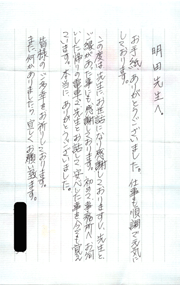 明田先生へ
お手紙ありがとうございました。仕事も順調で元気に
しております。
この度は先生にお世話になり感謝しております。先生と
ご縁があった事にも感謝しております。初めて事務所へお伺
いした帰りの電車で先生とお話して安心した事を今でも覚え
ています。本当にありがとうございました。
皆様のご多幸をお祈りしております。
また何かありましたら宜しくお願い致します。